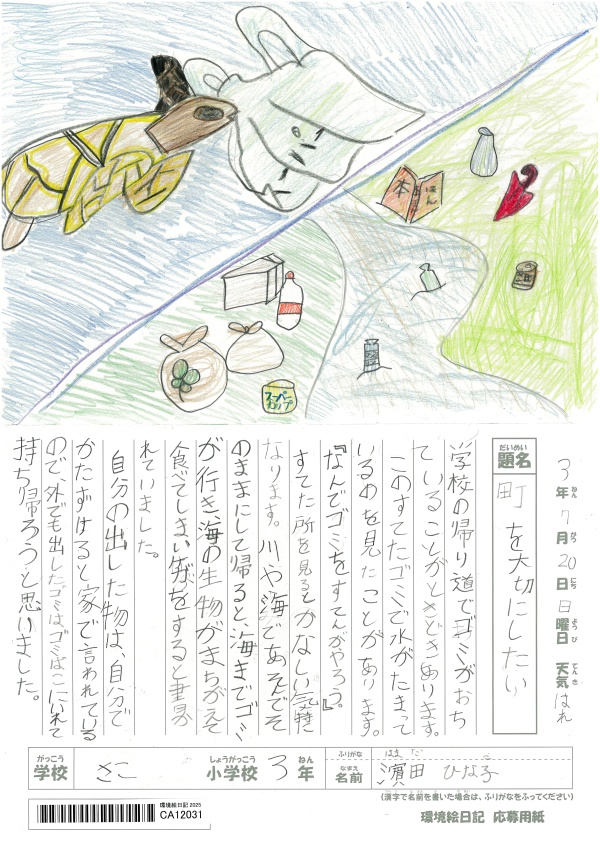 本
ほん
スーパーカップ
3年7月20日日曜日 天気はれ
題名 町を大切にしたい
学校の帰り道でゴミがおち
ていることがときどきあります。
このすてたゴミで水がたまって
いるのを見たことがあります。
『なんでゴミをすてんがやろう。』
すてた所を見るとかなしい気持
なります。川や海であそんでそ
のままにして帰ると、海までゴミ
が行き、海の生物がまちがえて
食べてしまい をすると書か
れていました。
自分の出した物は、自分で
かたずけると家で言われている
ので、外でも出したゴミはゴミばこにいれて
持ち帰ろうと思いました。
学校 さこ 小学校 3年 名前 濱田 ひな子
(漢字で名前を書いた場合は、ふりがなをふってください)
環境絵日記 2025
CA12031
環境絵日記 応募用紙